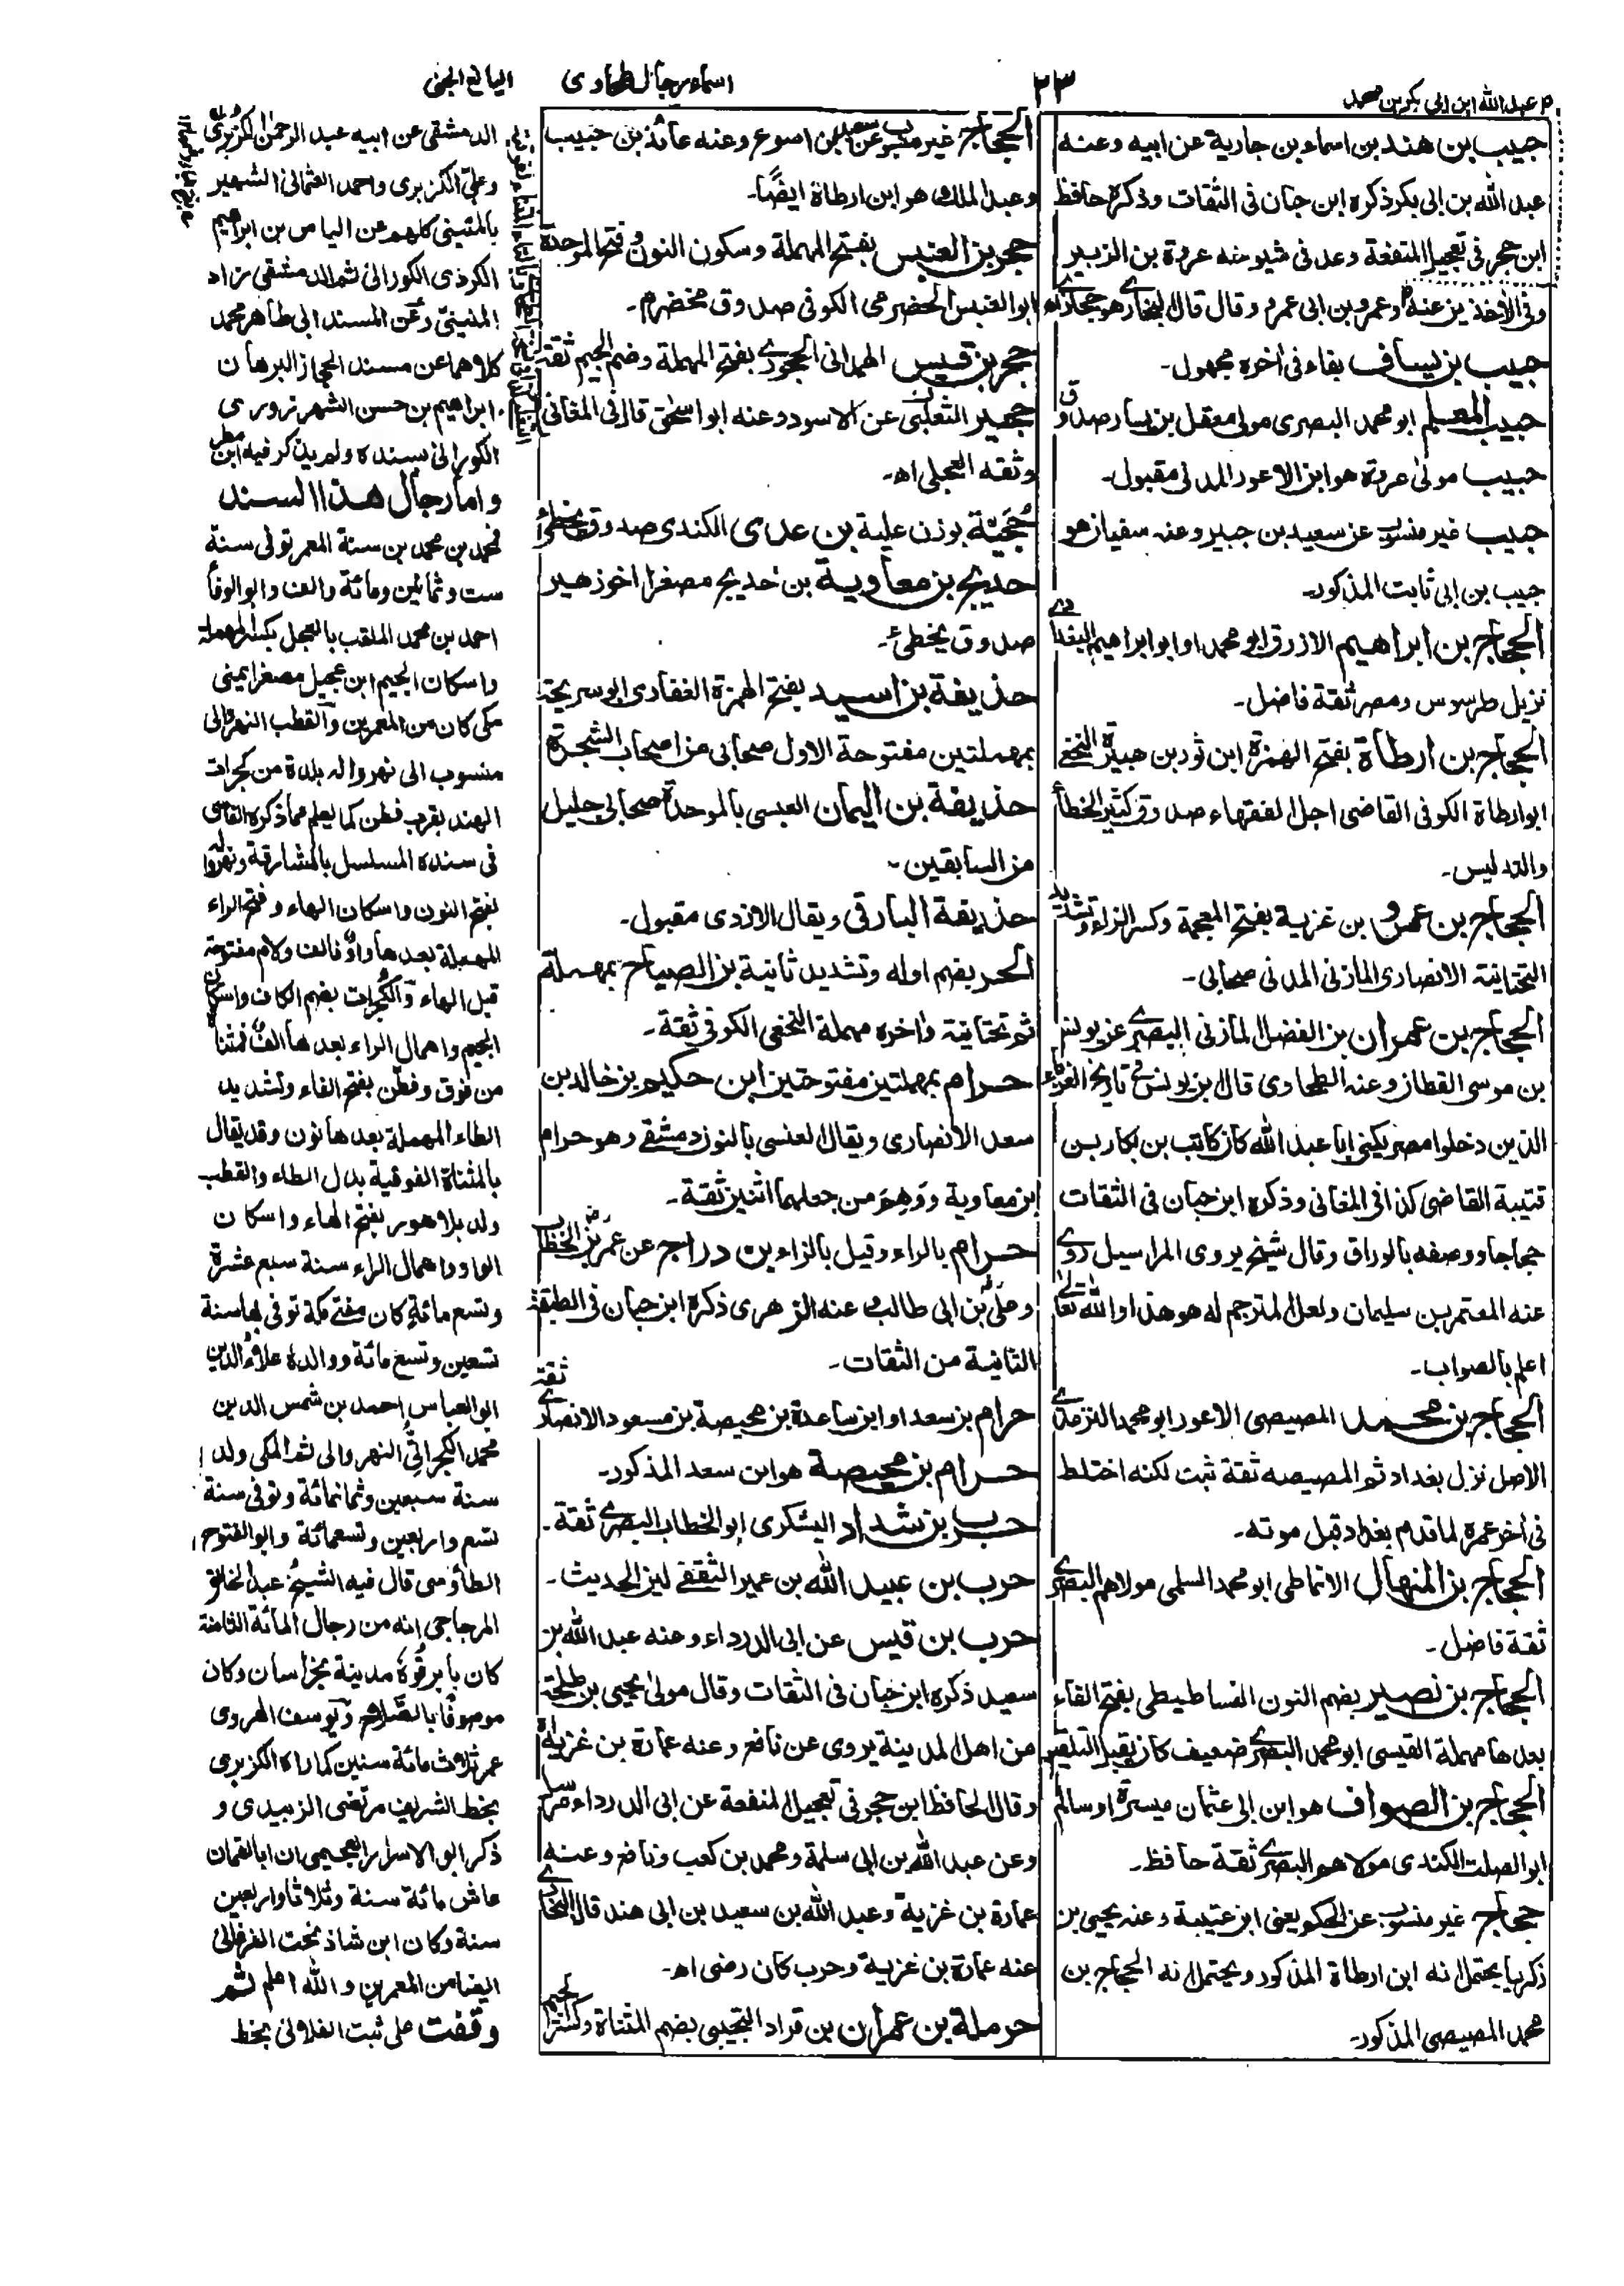 اليانع الجنى
اسماء رجال طحاوى
٢٣
م عبد الله ابن ابى بكر بن محمد
حبيب بن هند بن اسماء بن جارية عن ابيه وعنه
عبد الله بن ابى بكر ذكره ابن حبان فى الثقات وذكره حافظ
ابن حجر فى تعجيل المنفعة وعد فى شيوخه عروة بن الزبير
وفى الأخذين عنه م وعمرو بن ابى عمرو وقال قال البخارى هو حجازى اه
حبيب بن يساف بفاء فى اخره مجهول۔
حبيب المعلم ابو محمد البصرى مولى معقل بن يسار صدوق
حبيب مولى عروة هو ابن الاعور المدنى مقبول۔
حبيب غير منسوب عن سعيد بن جبير وعنه سفيان هو
حبيب بن ابى ثابت المذكور۔
الحجاج بن ابراهيم الازرق ابو محمد او ابو ابراهيم البغدادى
نزيل طرسوس ومصر ثقة فاضل۔
الحجاج بن ارطاة بفتح الهمزة ابن ثور بن هبيرة النخعى
ابو ارطاة الكوفى القاضى اجل الفقهاء صدوق كثير الخطأ
والتدليس۔
الحجاج بن عمرو بن غزية بفتح المعجمة وكسر الزاء وتشديد
التحتانية الانصارى المازنى المدنى صحابى۔
الحجاج بن عمران بن الفضل المازنى البصرى عن يونس
بن موسى القطان وعنه الطحاوى قال ابن يونس فى تاريخ الغرباء
الذين دخلوا مصر يكنى ابا عبد الله كان كاتب بن بكار بن
قتيبة القاضى كذا فى المغانى وذكره ابن حبان فى الثقات
حجاجا ووصفه بالوراق وقال شيخ يروى المراسيل روى
عنه المعتمر بن سليمان ولعل المترجم له هو هذا او الله تعالى
اعلم بالصواب۔
الحجاج بن محمد المصيصى الاعور ابو محمد الترمذى
الاصل نزل بغداد ثم المصيصه ثقة ثبت لكنه اختلط
فى اخر عمره لما قدم بغداد قبل موته۔
الحجاج بن المنهال الانماطى ابو محمد السلمى مولاهم البصرى
ثقة فاضل۔
الحجاج بن نصير بضم النون الفساطيطى بفتح الفاء
بعدها مهملة القيسى ابو محمد البصرى ضعيف كان يقبل التلقين
الحجاج بن الصواف هو ابن ابى عثمان ميسرة او سالم
ابو الصلت الكندى مولاهم البصرى ثقة حافظ۔
حجاج غير منسوب عن الحكم يعنى ابن عتيبة وعنه يحيى بن
ذكريا يحتمل انه ابن ارطاة المذكور ويحتمل انه الحجاج بن
محمد المصيصى المذكور۔
الحجاج غير منسوب عن سعيد بن اسوع وعنه عائذ بن حبيب
وعبد الملك هو ابن ارطاة ايضًا۔
حجر بن العنبس بفتح المهملة وسكون النون وفتح الموحدة
ابو العنبس الحضرمى الكوفى صدوق مخضرم۔
حجر بن قيس الهمدانى الحجورى بفتح المهملة وضم الجيم ثقة
حجير التغلبى عن الاسود وعنه ابو اسحق قال فى المغانى
وثقه العجلى اه۔
حجيّة بوزن علية بن عدى الكندى صدوق يخطئ
حديج بن معاوية بن حديج مصغرا اخو زهير
صدوق يخطئ۔
حذيفة بن اسيد بفتح الهمزة الغفارى ابو سريحة
بمهملتين مفتوحة الاول صحابى من اصحاب الشجرة
حذيفة بن اليمان العبسى بالموحدة صحابى جليل
من السابقين۔
حذيفة البارقى ويقال الازدى مقبول۔
الحر بضم اوله وتشديد ثانية بن الصياح بمهملة
ثم تحتانية واخره مهملة النخعى الكوفى ثقة۔
حرام بمهملتين مفتوحتين ابن حكيم بن خالد بن
سعد الانصارى ويقال العنسى بالنون دمشقى وهو حرام
ابن معاوية ووهم من جعلهما اثنين ثقة۔
حرام بالراء وقيل بالزاء بن دراج عن عمر بن الخطاب
وعلى بن ابى طالب وعنه الزهرى ذكره ابن حبان فى الطبقة
الثانية من الثقات۔
حرام بن سعد او ابن ساعدة بن محيصة بن مسعود الانصارى ثقة
حرام بن محيصة هو ابن سعد المذكور۔
حرب بن شداد اليشكرى ابو الخطاب البصرى ثقة۔
حرب بن عبيد الله بن عمير الثقفى لين الحديث۔
حرب بن قيس عن ابى الدرداء وعنه عبد الله بن
سعيد ذكره ابن حبان فى الثقات وقال مولى يحيى بن طلحة
من اهل المدينة يروى عن نافع وعنه عمارة بن غزية اه
وقال الحافظ ابن حجر فى تعجيل المنفعة عن ابى الدرداء مرسل
وعن عبد الله بن ابى سلمة ومحمد بن كعب ونافع وعنه
عمارة بن غزية وعبد الله بن سعيد بن ابى هند قال البخارى
عنه عمارة بن غزية وحرب كان رضى اه۔
حرملة بن عمران بن قراد التجيبى بضم المثناة وكسر الجيم
الدمشقى عن ابيه عبد الرحمن الكزبرى
وعلى الكزبرى واحمد العثمانى الشهير
بالمنينى كلهم عن الياس بن ابراهيم
الكردى الكورانى ثم الدمشقى زاد
المنينى وعن المسند ابى طاهر محمد
كلاهما عن مسند الحجاز البرهان
ابراهيم بن حسن الشهرزورى
الكورانى بسنده ولم يذكر فيه ابن مطر
واما رجال هذا السند
فمحمد بن محمد بن سنة المعمر توفى سنة
ست وثمانين ومائة والف وابو الوفا
احمد بن محمد الملقب بالعجل بكسر المهملة
واسكان الجيم ابن عجيل مصغرا يمنى
مكى كان من المعمرين والقطب النهروالى
منسوب الى نهرواله بلدة من كجرات
الهند بقرب فطن كما يعلم مما ذكره الفاسى
فى سنده المسلسل بالمشارقة ونهرواله
بفتح النون واسكان الهاء وفتح الراء
المهملة بعدها واو فالف ولام مفتوحة
قبل الهاء والكجرات بضم الكاف واسكان
الجيم واهمال الراء بعدها الف فمثناة
من فوق وفطن بفتح الفاء وتشديد
الطاء المهملة بعدها نون وقد يقال
بالمثناة الفوقية بدل الطاء والقطب
ولد بلاهور بفتح الهاء واسكان
الواو واهمال الراء سنة سبع عشرة
وتسع مائة كان مفتى مكة توفى بها سنة
تسعين وتسع مائة ووالده علاء الدين
ابو العباس احمد بن شمس الدين
محمد الكجراتى النهروالى ثم المكى ولد
سنة سبعين وثمانمائة وتوفى سنة
تسع واربعين وتسعمائة وابو الفتوح
الطاؤسى قال فيه الشيخ عبد الخالق
المزجاجى انه من رجال المائة الثامنة
كان بابرقوه مدينة بخراسان وكان
موصوفا بالصلاح ويوسف الهروى
عمر ثلاث مائة سنين كما راه الكزبرى
بخط الشريف مرتضى الزبيدى و
ذكر ابو الاسرار العجيمى ان ابا لقمان
عاش مائة سنة وثلاثا واربعين
سنة وكان ابن شاذ بخت الفرغانى
ايضا من المعمرين والله اعلم ثم
وقفت على ثبت الفلانى بخط